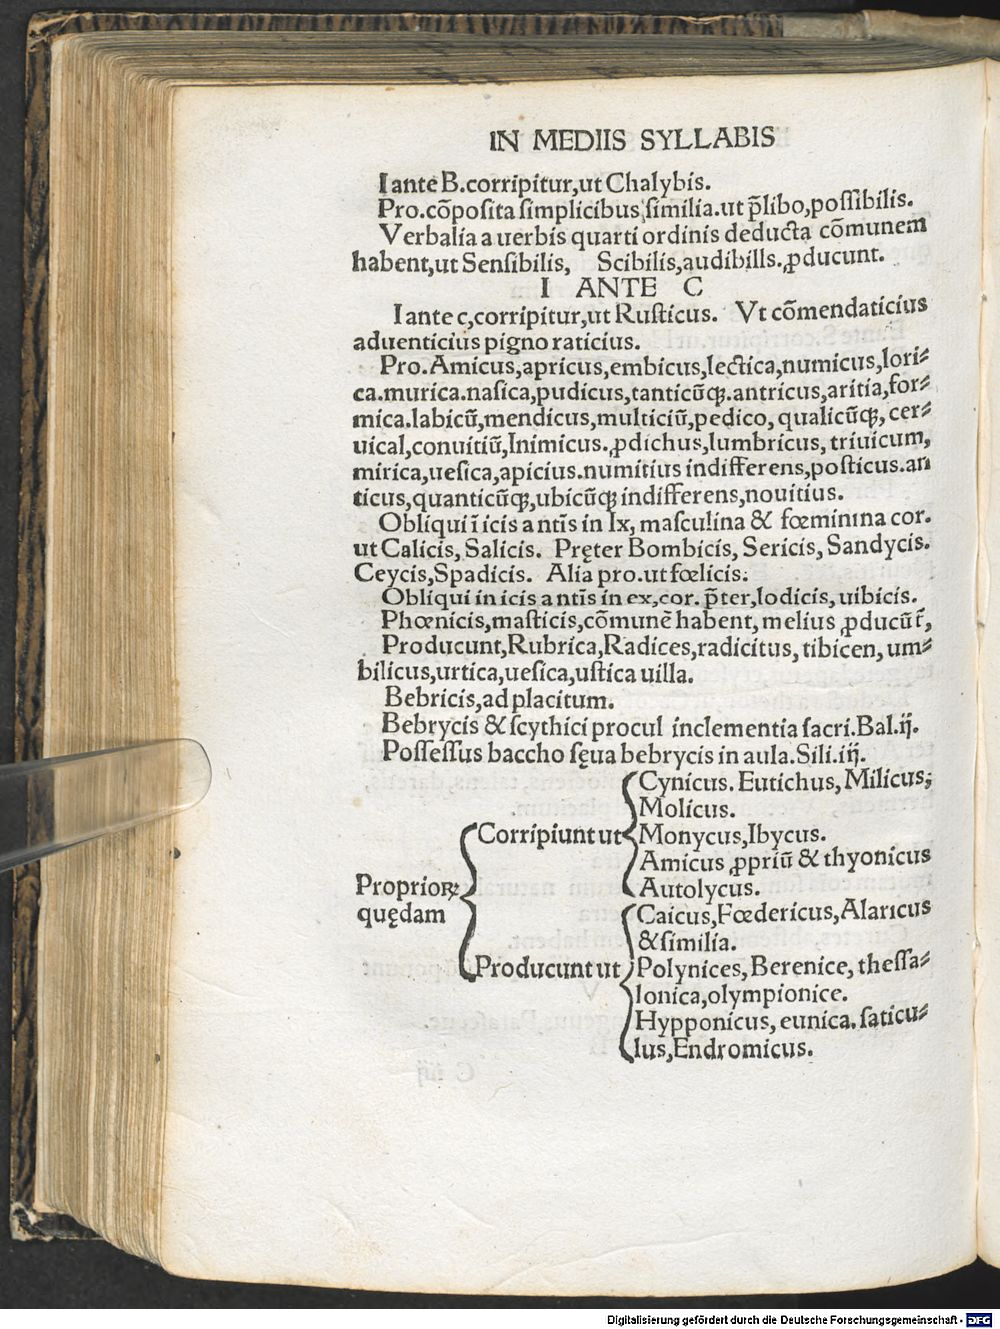 IN MEDIIS SYLLABIS
I ante B.corripitur,ut Chalybis.
Pro.cōposita simplicibus similia.ut p̄libo,possibilis.
Verbalia a uerbis quarti ordinis deducta cōmunem
habent,ut Sensibilis, Scibilis,audibills.ꝓducunt.
I ANTE C
I ante c,corripitur,ut Rusticus. Vt cōmendaticius
aduenticius pigno raticius.
Pro.Amicus,apricus,embicus,lectica,numicus,lori⸗
ca.murica.nasica,pudicus,tanticūqꝫ.antricus,aritia,for⸗
mica.labicū,mendicus,multiciū,pedico, qualicūqꝫ, cer⸗
uical,conuitiū,Inimicus.ꝓdichus,lumbricus, triuicum,
mirica,uesica,apicius.numitius indifferens,posticus.an
ticus,quanticūqꝫ,ubicūqꝫ indifferens,nouitius.
Obliqui ī icis a ntīs in Ix, masculina & fœminina cor.
ut Calicis, Salicis. Pręter Bombicis, Sericis, Sandycis.
Ceycis,Spadicis. Alia pro.ut fœlicis.
Obliqui in icis a ntīs in ex,cor. p̄ter,lodicis,uibicis.
Phœnicis,masticis,cōmunē habent, melius ꝓducūt̄,
Producunt,Rubrica,Radices,radicitus, tibicen, um⸗
bilicus,urtica,uesica,ustica uilla.
Bebricis,ad placitum.
Bebrycis & scythici procul inclementia sacri.Bal.ij.
Possessus baccho sęua bebrycis in aula.Sili.iij.
Cynicus. Eutichus, Milicus;
Molicus.
Corripiunt ut Monycus,Ibycus.
Amicus ꝓpriū & thyonicus
Proprioꝝ Autolycus.
quędam Caicus,Fœdericus,Alaricus
& similia.
Producunt ut Polynices, Berenice, thessa⸗
lonica,olympionice.
Hypponicus, eunica. saticu⸗
lus,Endromicus.
Digitalisierung gefördert durch die Deutsche Forschungsgemeinschaft - DFG